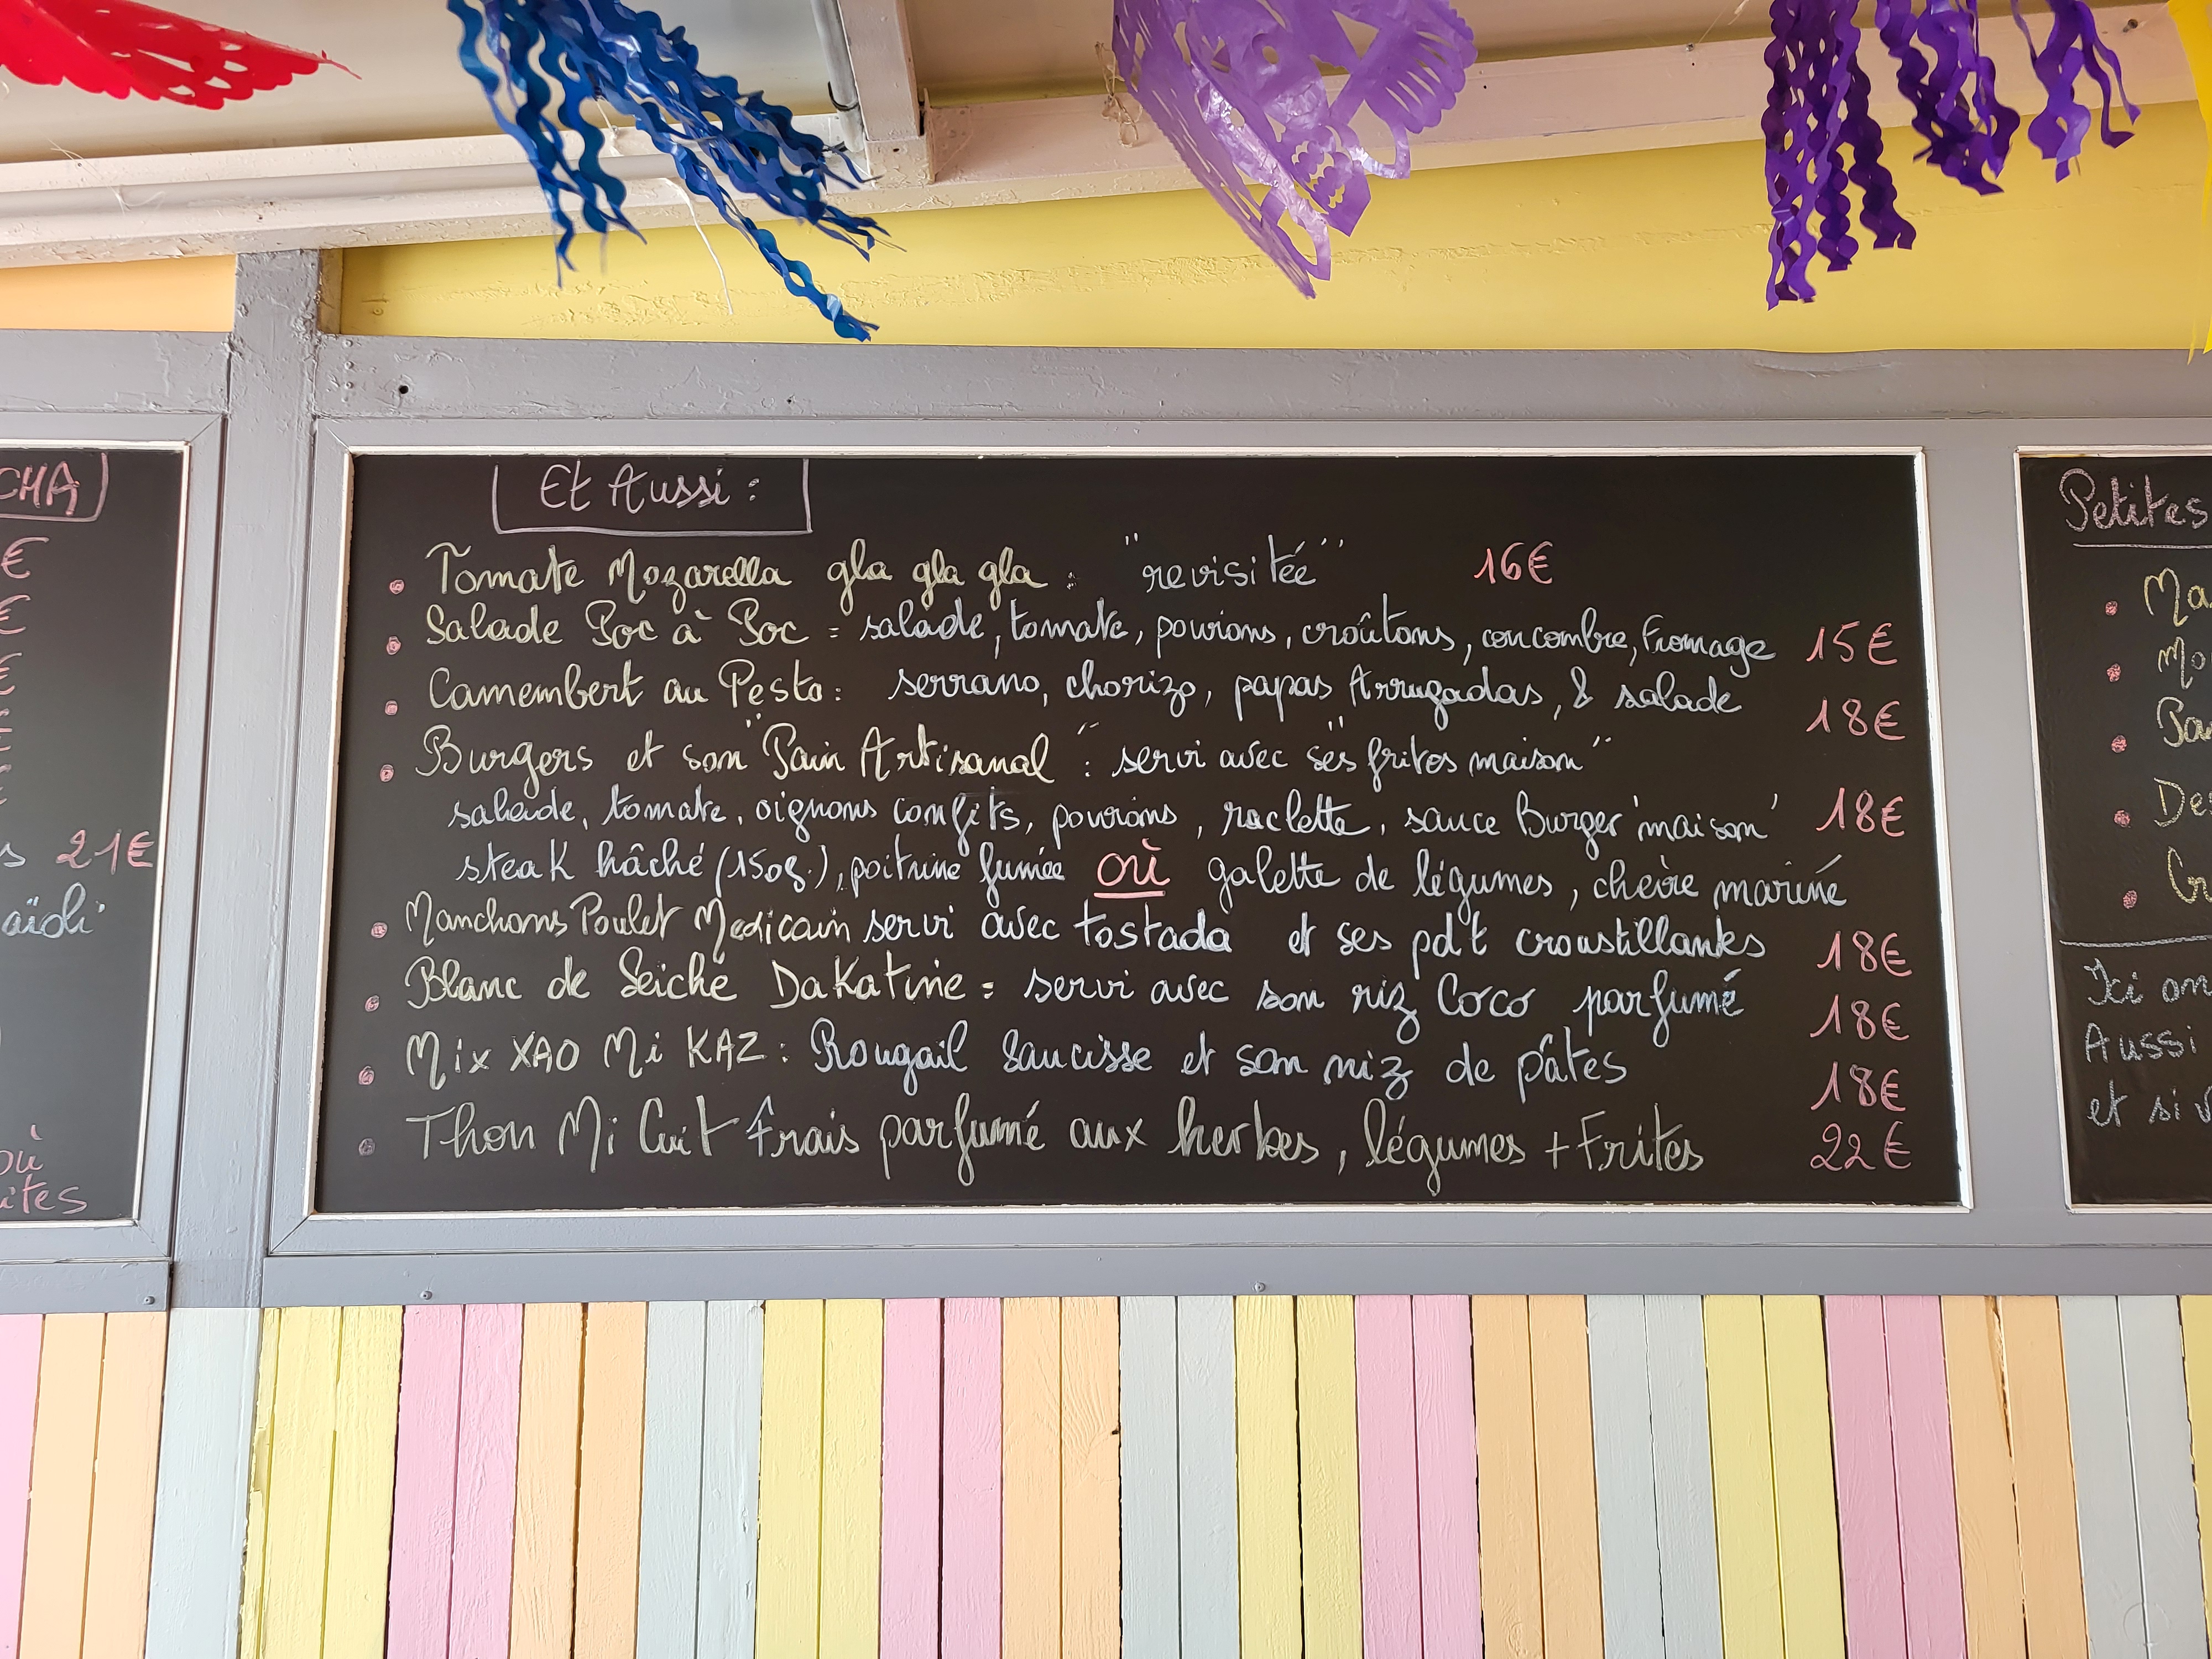 CHA
€
€
€
€
€
s 21€
aïoli
où
ites
Et Aussi :
Tomate Mozarella gla gla gla : "revisitée" 16€
Salade Poc à Poc = salade, tomate, poivrons, croûtons, concombre, fromage 15€
Camembert au Pesto : serrano, chorizo, papas Arrugadas, & salade 18€
Burgers et son "Pain Artisanal" : servi avec ses "frites maison"
salade, tomate, oignons confits, poivrons, raclette, sauce Burger 'maison' 18€
steak hâché (150g.), poitrine fumée où galette de légumes, chèvre mariné
Manchons Poulet Mexicain servi avec tostada et ses pdt croustillantes 18€
Blanc de Seiche Dakatine = servi avec son riz Coco parfumé 18€
Mix XAO Mi KAZ : Rougail Saucisse et son riz de pâtes 18€
Thon Mi Cuit frais parfumé aux herbes, légumes + Frites 22€
Petites
Ma
Mo
De
Ici on
Aussi
et si v